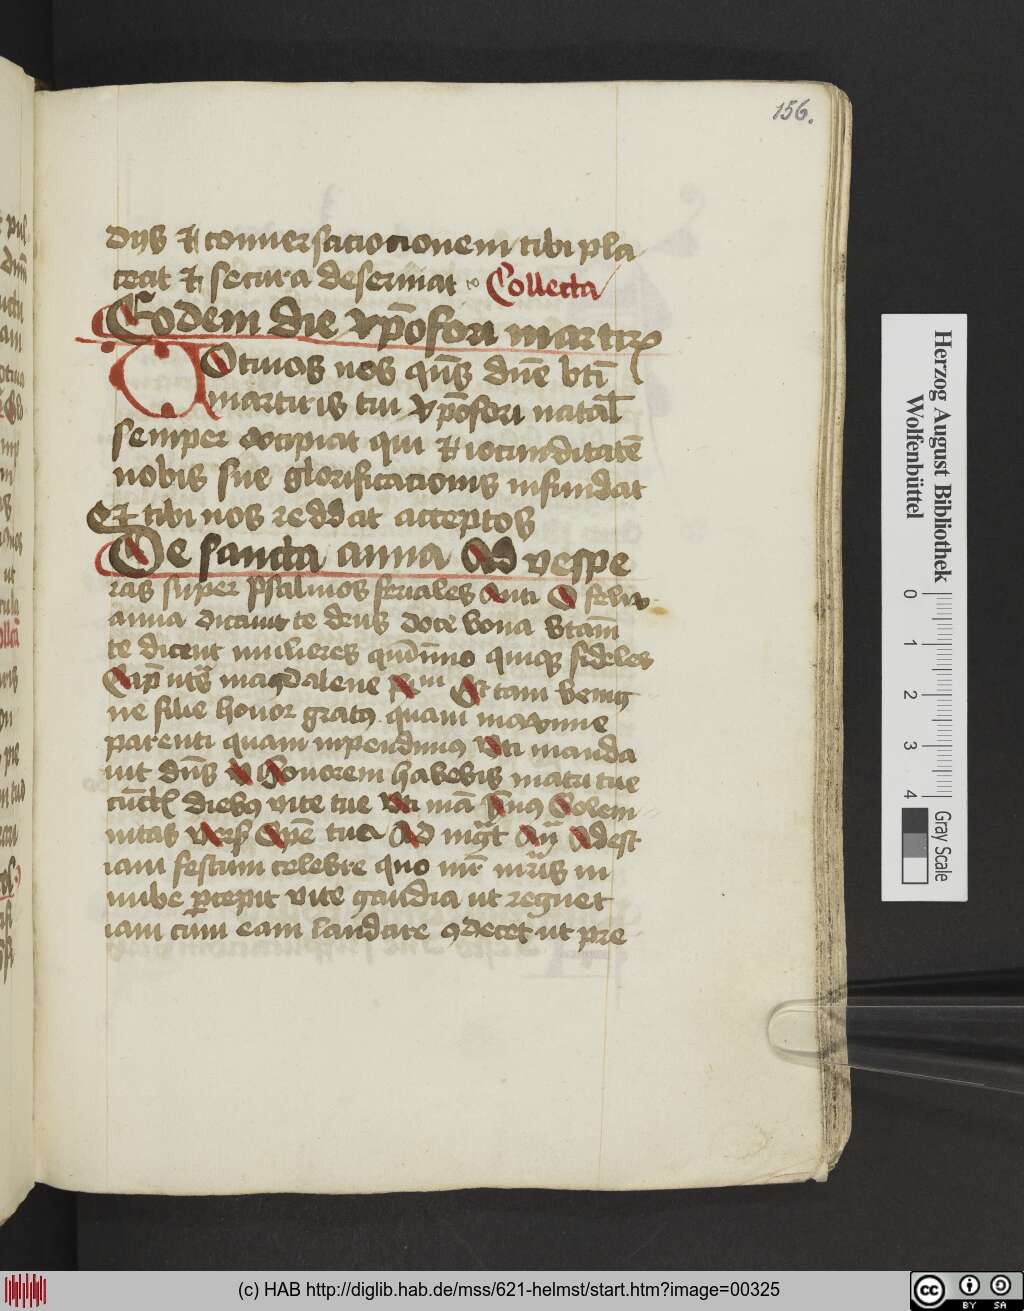 156.
dijs et conuersaciocionem tibi pla
ceat et secura deseruiat Collecta
Eodem die xpofori martiris
Otiuos nos qus dne bti
martiris tui xpofori natal
semper excipiat qui et iocunditate
nobis sue glorificacionis infundat
Et tibi nos reddat acceptos
De sancta anna Ad vespe
ras super psalmos feriales Anti O felix
anna dicant te deus doce bona
te dicent mulieres fideles
magdalene tam benig
ne filie honor quam maxime
parenti quam inpendimus manda
uit dns honorem habebis matri tue
diebus vite tue Solem
nitas tua Ad Adest
iam festum celebre quo
nube gaudia ut regnet
iam cum eam laudare decet ut pre
Herzog August Bibliothek
Wolfenbüttel
0 1 2 3 4
Gray Scale
(c) HAB http://diglib.hab.de/mss/621-helmst/start.htm?image=00325
cc BY SA